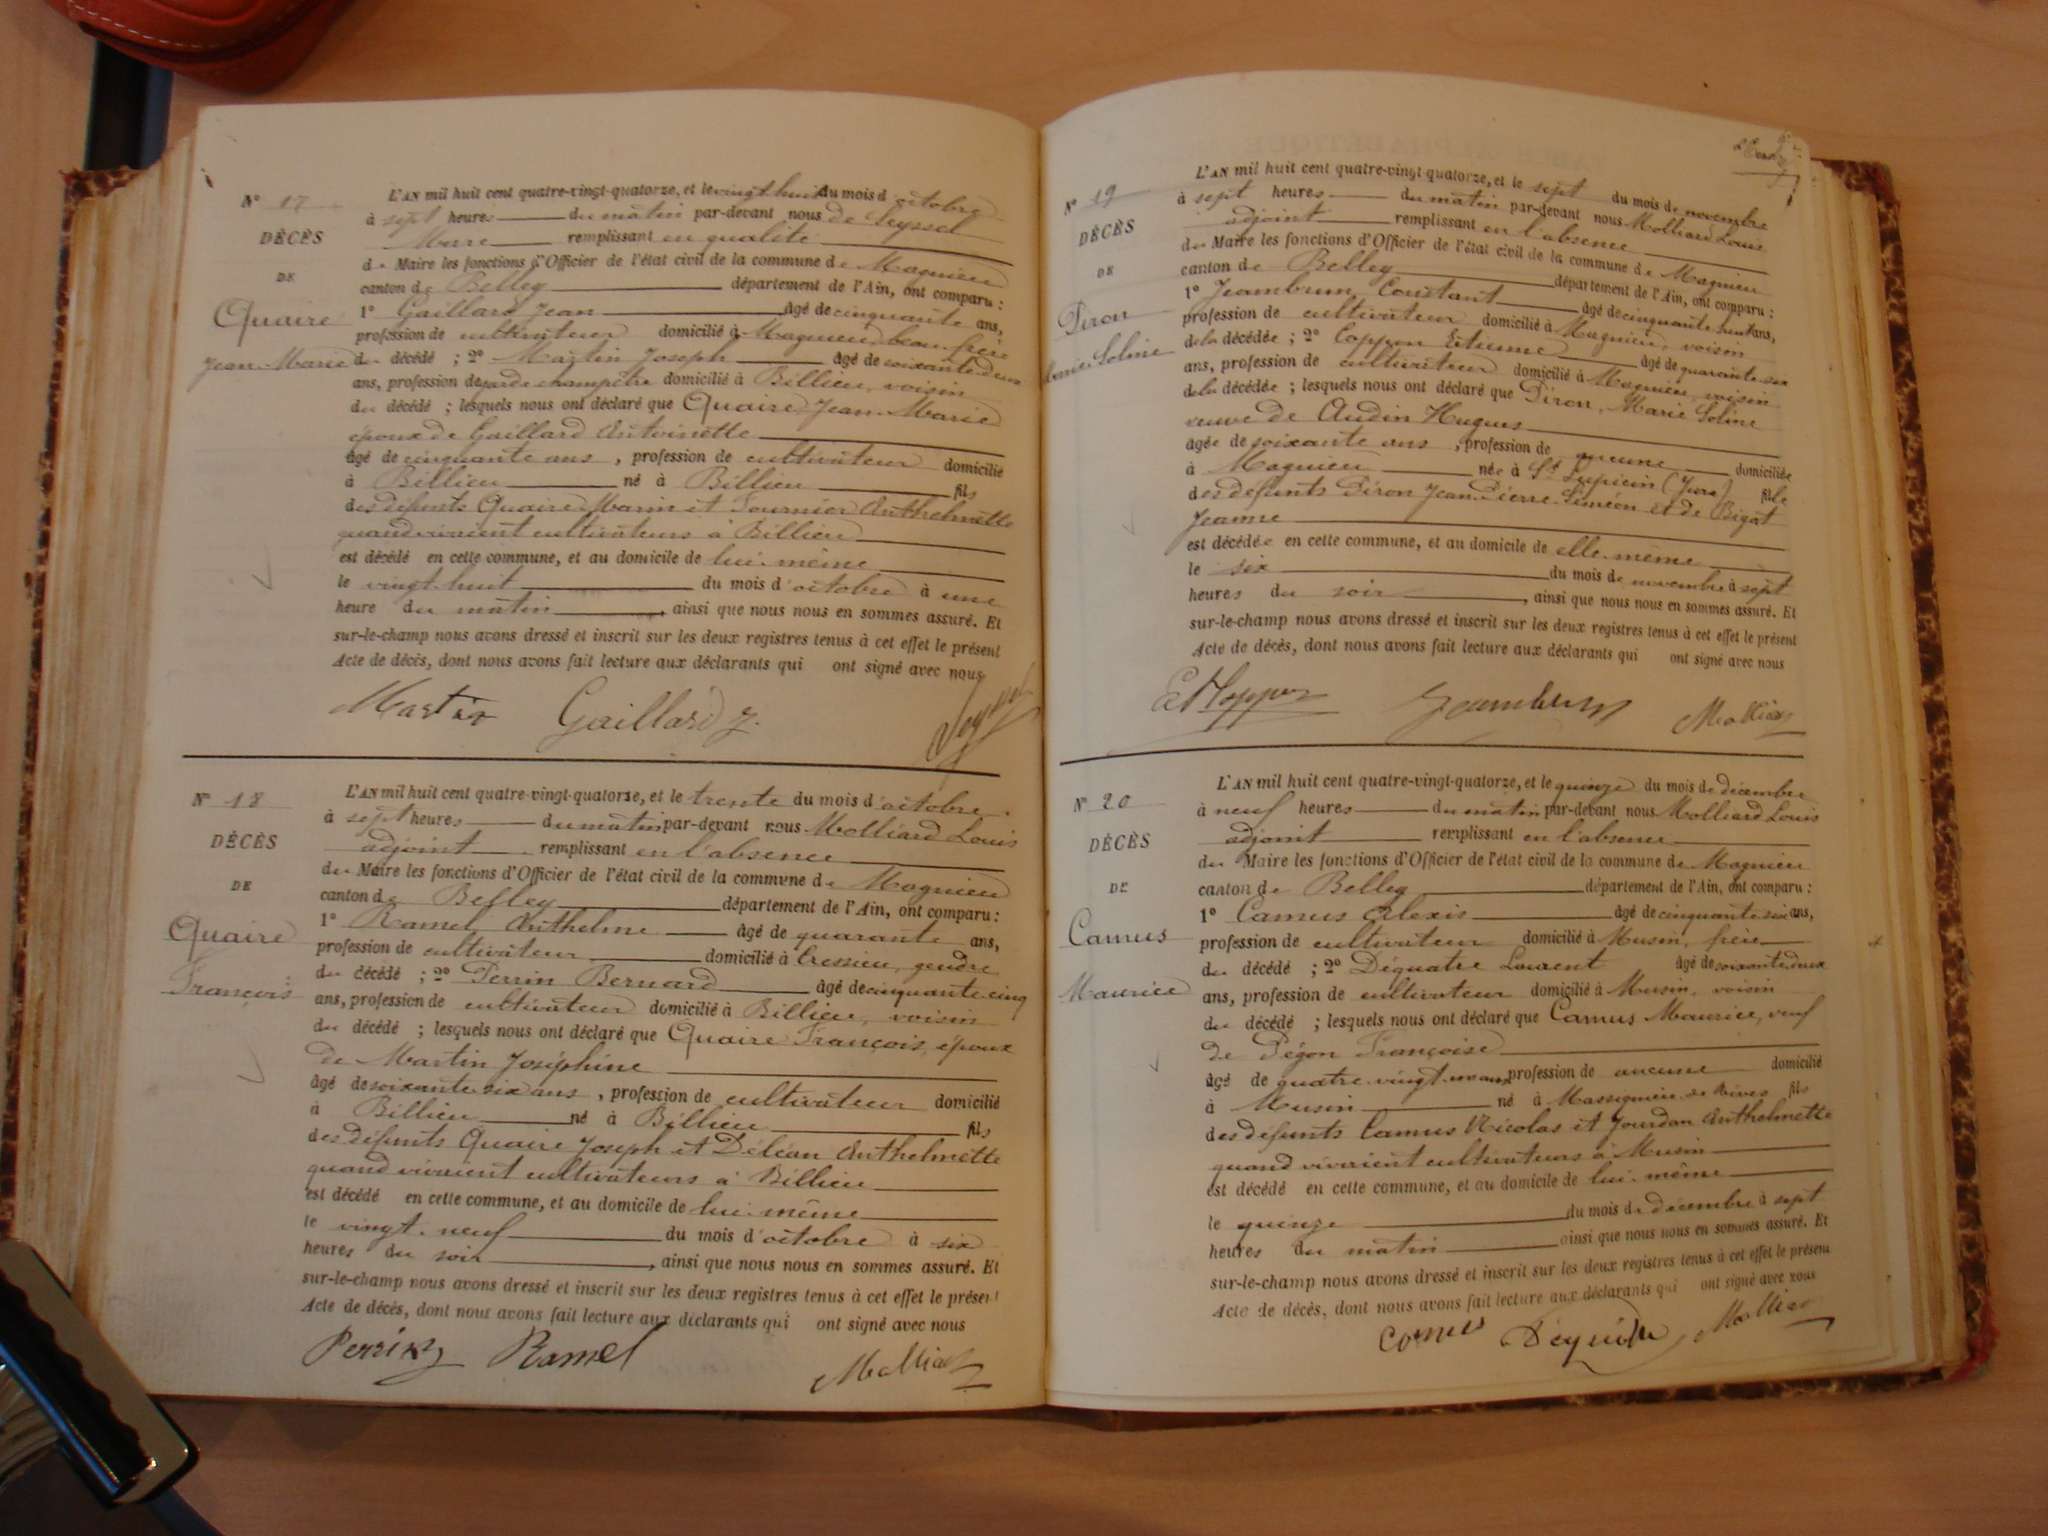 N° 17
DÉCÈS
DE
Quaire
Jean-Marie
L'AN mil huit cent quatre-vingt-quatorze, et le vingt huit du mois d'octobre
à sept heures du matin par-devant nous de Seyssel
Maire remplissant en qualité
de Maire les fonctions d'Officier de l'état civil de la commune de Magnieu
canton de Belley département de l'Ain, ont comparu :
1° Gaillard Jean âgé de cinquante ans,
profession de cultivateur domicilié à Magnieu, beau-frère
du décédé ; 2° Martin Joseph âgé de soixante deux
ans, profession de garde champêtre domicilié à Billieu, voisin
du décédé ; lesquels nous ont déclaré que Quaire, Jean-Marie
époux de Gaillard Antoinette
âgé de cinquante ans, profession de cultivateur domicilié
à Billieu né à Billieu fils
des défunts Quaire Marin et Fournier Anthelmette
quand vivaient cultivateurs à Billieu
est décédé en cette commune, et au domicile de lui-même
le vingt-huit du mois d'octobre à une
heure du matin, ainsi que nous nous en sommes assuré. Et
sur-le-champ nous avons dressé et inscrit sur les deux registres tenus à cet effet le présent
Acte de décès, dont nous avons fait lecture aux déclarants qui ont signé avec nous
Martin Gaillard J.
N° 18
DÉCÈS
DE
Quaire
François
L'AN mil huit cent quatre-vingt-quatorze, et le trente du mois d'octobre
à sept heures du matin par-devant nous Molliard Louis
adjoint remplissant en l'absence
du Maire les fonctions d'Officier de l'état civil de la commune de Magnieu
canton de Belley département de l'Ain, ont comparu :
1° Ramel Anthelme âgé de quarante ans,
profession de cultivateur domicilié à Cressieu, gendre
du décédé ; 2° Perrin Bernard âgé de cinquante-cinq
ans, profession de cultivateur domicilié à Billieu, voisin
du décédé ; lesquels nous ont déclaré que Quaire François, époux
de Martin Joséphine
âgé de soixante-six ans, profession de cultivateur domicilié
à Billieu né à Billieu fils
des défunts Quaire Joseph et Déléan Anthelmette
quand vivaient cultivateurs à Billieu
est décédé en cette commune, et au domicile de lui-même
le vingt-neuf du mois d'octobre à six
heures du soir, ainsi que nous nous en sommes assuré. Et
sur-le-champ nous avons dressé et inscrit sur les deux registres tenus à cet effet le présent
Acte de décès, dont nous avons fait lecture aux déclarants qui ont signé avec nous
Perrin Ramel Molliard
N° 19
DÉCÈS
DE
Piron
Marie Soline
L'AN mil huit cent quatre-vingt-quatorze, et le sept du mois de novembre
à sept heures du matin par-devant nous Molliard Louis
adjoint remplissant en l'absence
du Maire les fonctions d'Officier de l'état civil de la commune de Magnieu
canton de Belley département de l'Ain, ont comparu :
1° Jeambrun, Constant âgé de cinquante huit ans,
profession de cultivateur domicilié à Magnieu, voisin
de la décédée ; 2° Coppon Etienne âgé de quarante-six
ans, profession de cultivateur domicilié à Magnieu, voisin
de la décédée ; lesquels nous ont déclaré que Piron, Marie Soline
veuve de Audin Hugues
âgée de soixante ans, profession de aucune domiciliée
à Magnieu née à St Lupicin (Jura) fille
des défunts Piron Jean-Pierre-Siméon et de Bigot
Jeanne
est décédée en cette commune, et au domicile de elle-même
le six du mois de novembre à sept
heures du soir, ainsi que nous nous en sommes assuré. Et
sur-le-champ nous avons dressé et inscrit sur les deux registres tenus à cet effet le présent
Acte de décès, dont nous avons fait lecture aux déclarants qui ont signé avec nous
Jeambrun Molliard
N° 20
DÉCÈS
DE
Camus
Maurice
L'AN mil huit cent quatre-vingt-quatorze, et le quinze du mois de décembre
à neuf heures du matin par-devant nous Molliard Louis
adjoint remplissant en l'absence
du Maire les fonctions d'Officier de l'état civil de la commune de Magnieu
canton de Belley département de l'Ain, ont comparu :
1° Camus Alexis âgé de cinquante six ans,
profession de cultivateur domicilié à Musin, frère
du décédé ; 2° Déquatre Laurent âgé de soixante deux
ans, profession de cultivateur domicilié à Musin, voisin
du décédé ; lesquels nous ont déclaré que Camus Maurice, veuf
de Pégon Françoise
âgé de quatre-vingt-un ans, profession de aucune domicilié
à Musin né à Massignieu de Rives fils
des défunts Camus Nicolas et Jourdan Anthelmette
quand vivaient cultivateurs à Musin
est décédé en cette commune, et au domicile de lui-même
le quinze du mois de décembre à sept
heures du matin ainsi que nous nous en sommes assuré. Et
sur-le-champ nous avons dressé et inscrit sur les deux registres tenus à cet effet le présent
Acte de décès, dont nous avons fait lecture aux déclarants qui ont signé avec nous
Camus Déquatre Molliard